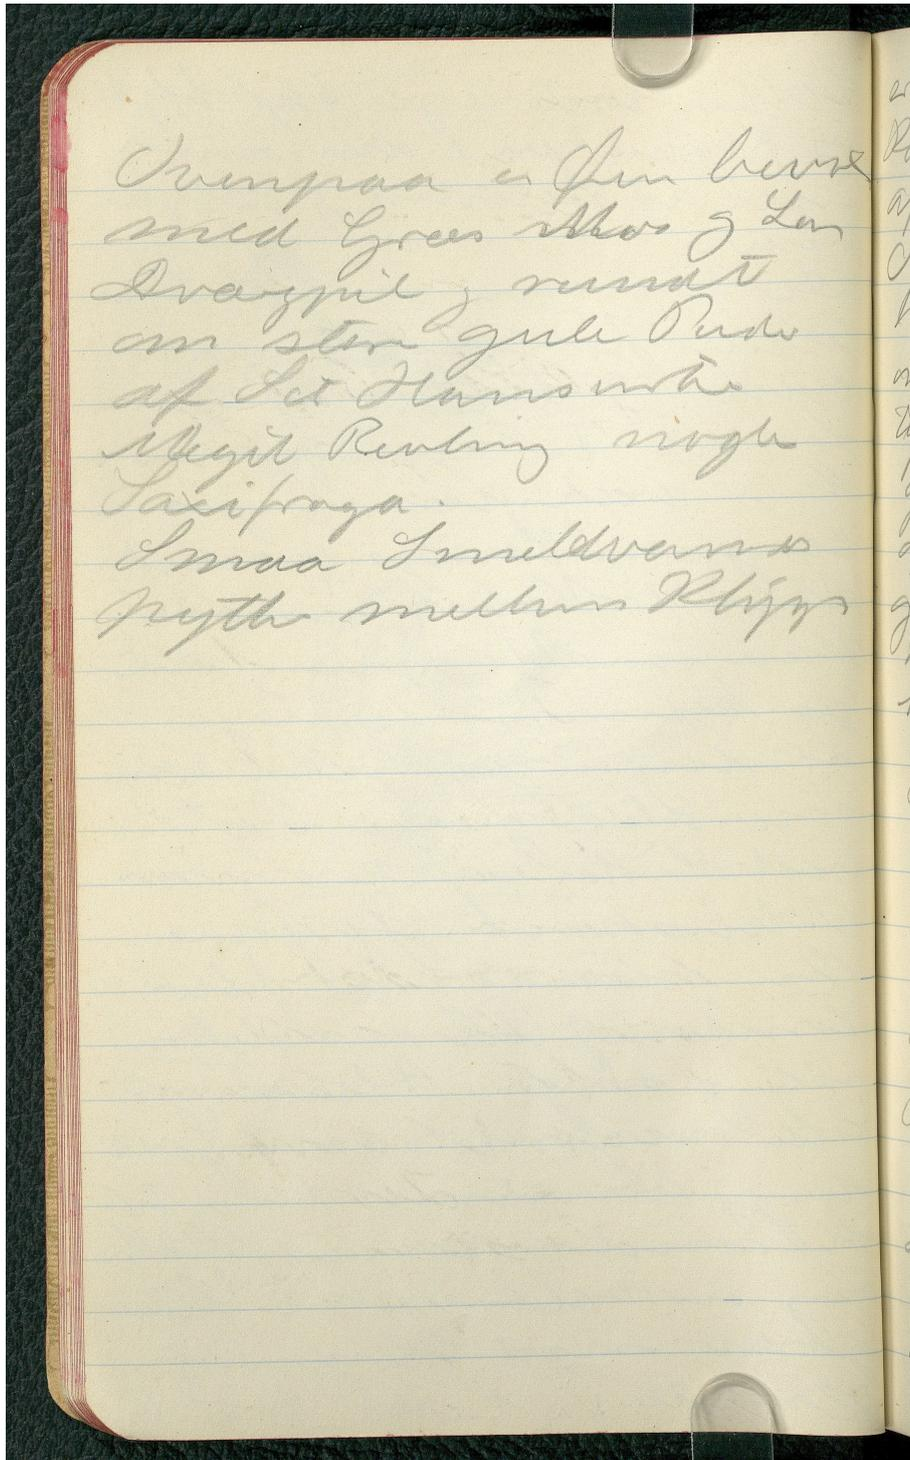 Ovenpaa er Øen bevox
med Græs Mos og Lav
Dværgpil og rundt
om store gule Puder
af Sct Hansurter
Meget Revling nogle
Saxifraga.
Smaa Smeldvands
pytter mellem